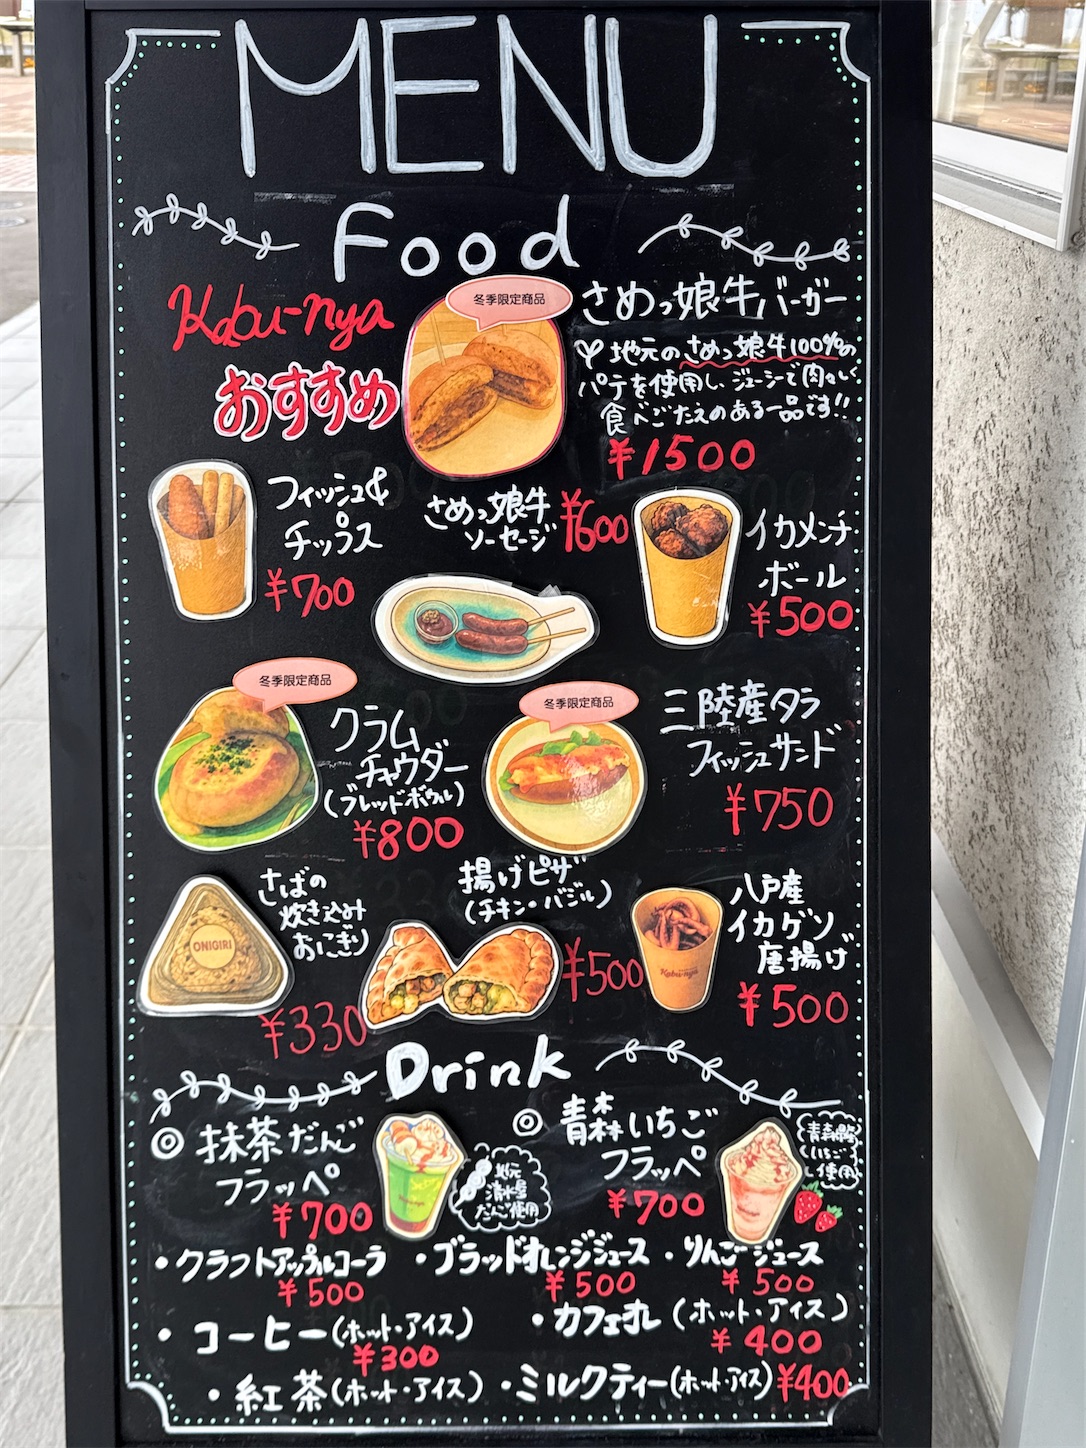 MENU
Food
Kobu-nya
おすすめ
冬季限定商品
さめっ娘牛バーガー
地元のさめっ娘牛100%の
パテを使用し、ジューシで肉々しく
食べごたえのある一品です!!
¥1500
フィッシュ&
チップス
¥700
さめっ娘牛
ソーセージ
¥600
イカメンチ
ボール
¥500
冬季限定商品
クラム
チャウダー
(ブレッドボウル)
¥800
冬季限定商品
三陸産タラ
フィッシュサンド
¥750
ONIGIRI
さばの
炊き込み
おにぎり
¥330
揚げピザ
(チキン・バジル)
¥500
Kobu-nya
八戸産
イカゲソ
唐揚げ
¥500
Drink
◎ 抹茶だんご
フラッペ
¥700
地元
清水屋
だんご使用
◎ 青森いちご
フラッペ
¥700
青森県
いちご
使用
・クラフトアップルコーラ
¥500
・ブラッドオレンジジュース
¥500
・りんごジュース
¥500
・コーヒー(ホット・アイス)
¥300
・カフェオレ(ホット・アイス)
¥400
・紅茶(ホット・アイス)
・ミルクティー(ホット・アイス)
¥400